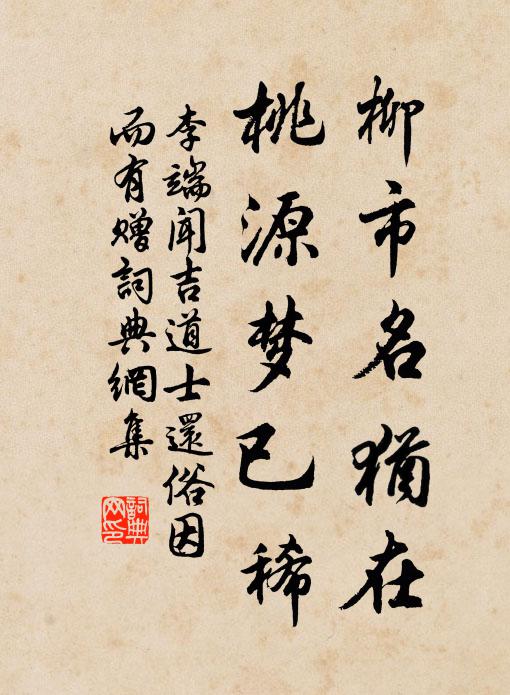 柳市名犹在
桃源梦已稀
李端闻吉道士還俗因
而有赠詞典網集
詞典网印